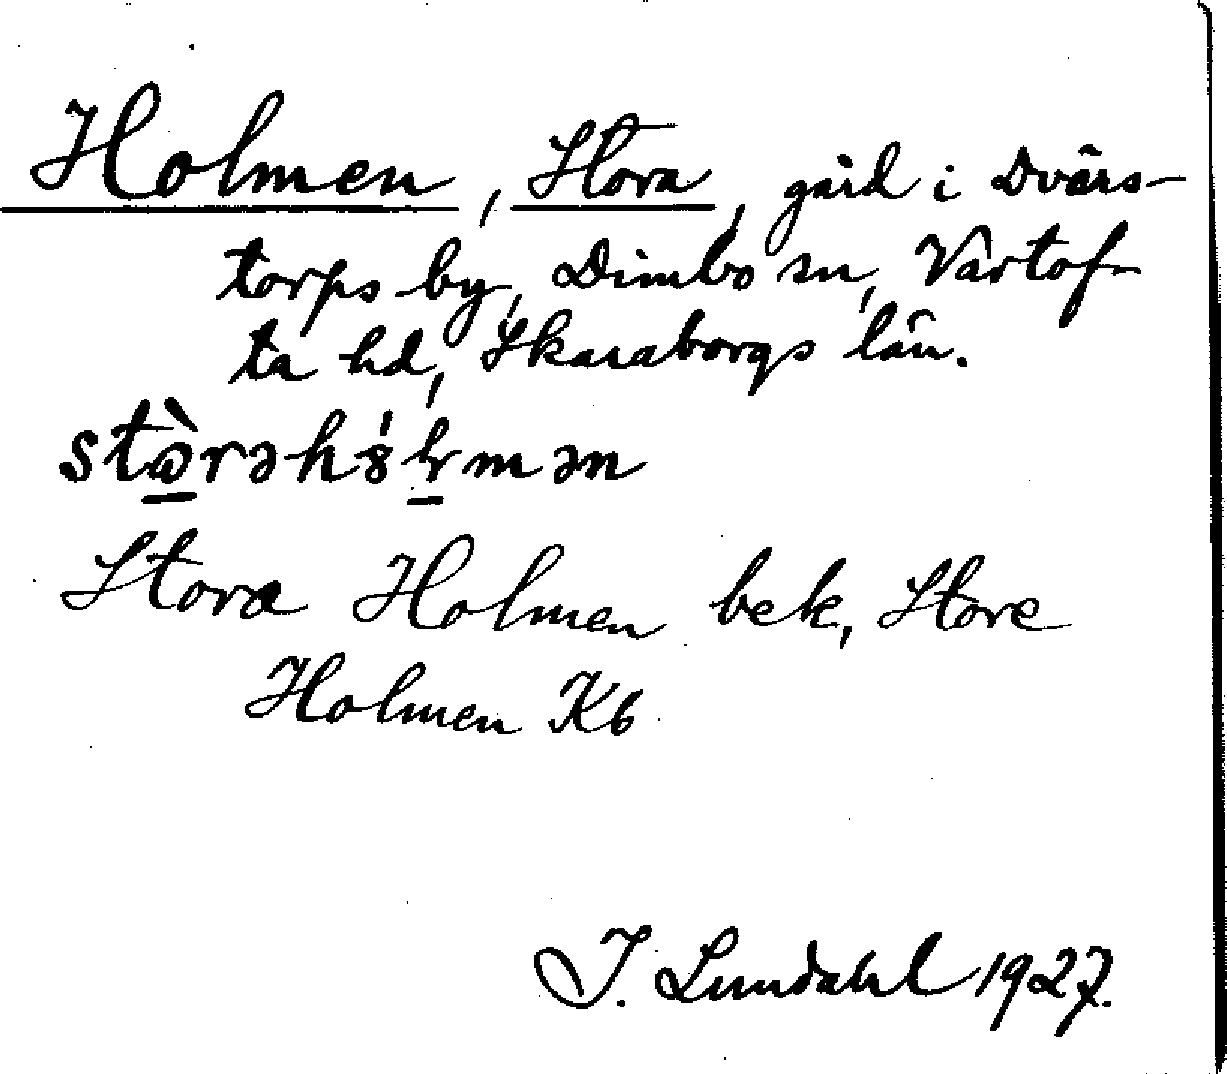 Holmen, Stora, gård i Dvärs-
torps by, Dimbo sn, Vartof-
ta hd, Skaraborgs län.
Stora Holmen bek, Store
Holmen Kb
I. Lundahl 1927.